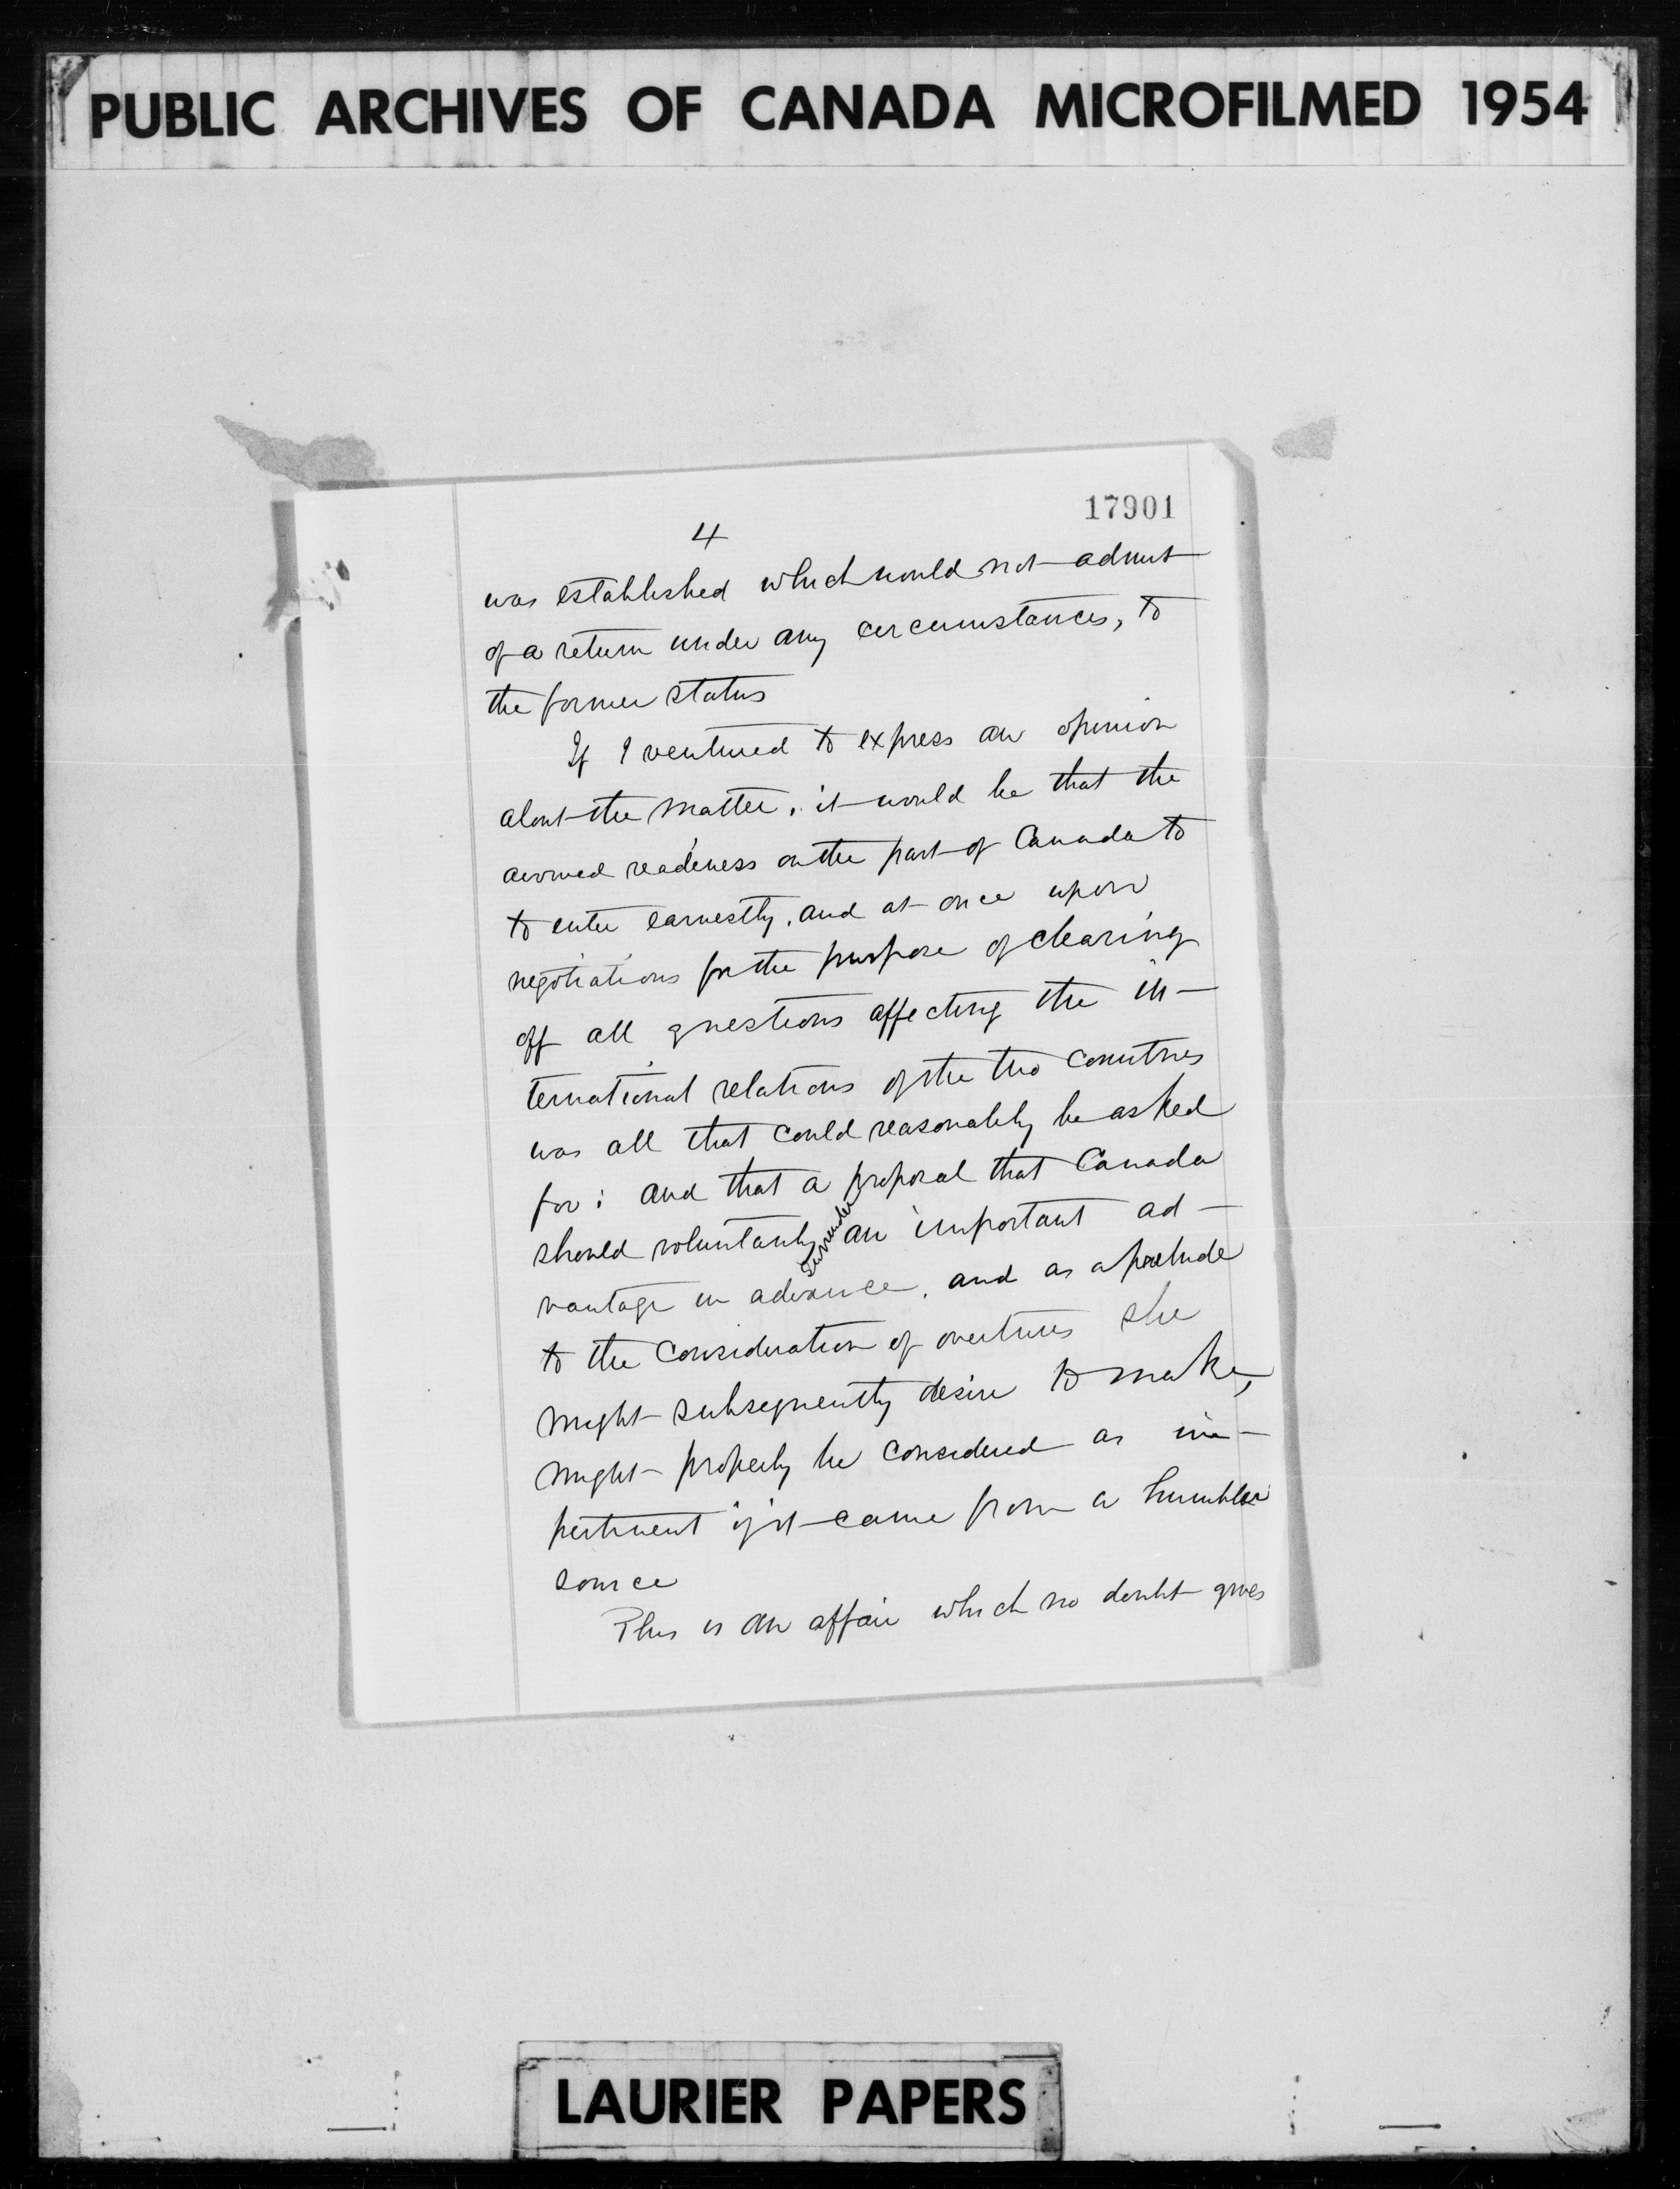 PUBLIC ARCHIVES OF CANADA MICROFILMED 1954
17901
4
was established which would not admit
of a return under any circumstances, to
the former status
If I ventured to express an opinion
about the matter, it would be that the
avowed readiness on the part of Canada to
to enter earnestly, and at once upon
negotiations for the purpose of clearing
off all questions affecting the in-
ternational relations of the two countries
was all that could reasonably be asked
for; and that a proposal that Canada
should voluntarily surrender an important ad-
vantage in advance, and as a prelude
to the consideration of overtures she
might subsequently desire to make,
might properly be considered as im-
pertinent if it came from a humbler
source
This is an affair which no doubt gives
LAURIER PAPERS